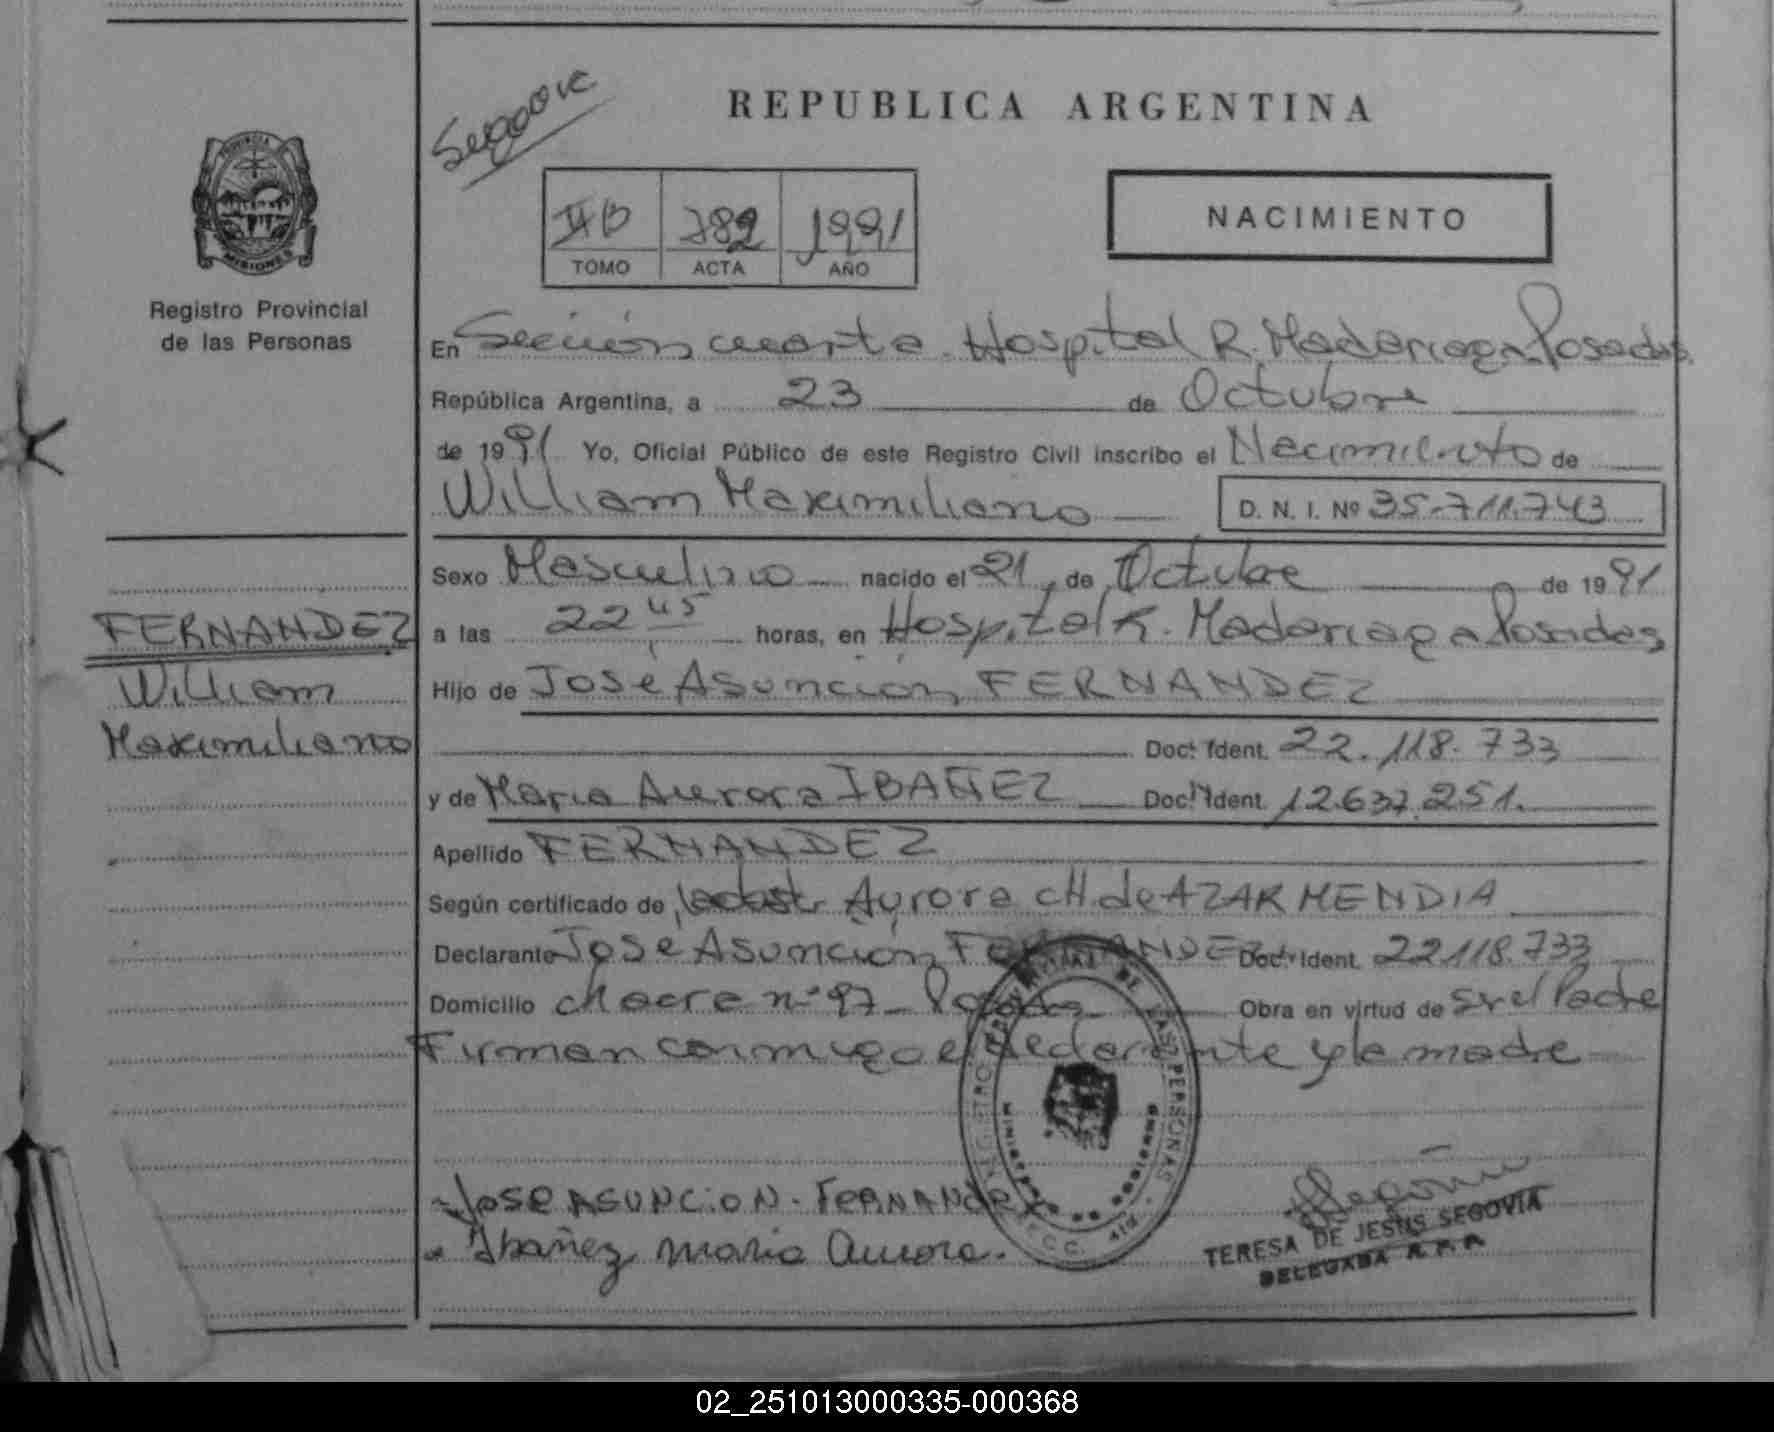 REPUBLICA ARGENTINA
PROVINCIA
MISIONES
Registro Provincial
de las Personas
II B 782 1991
TOMO ACTA AÑO
NACIMIENTO
En Sección cuarta Hospital R. Madariaga Posadas
República Argentina, a 23 de Octubre
de 1991 Yo, Oficial Público de este Registro Civil inscribo el Nacimiento de
William Maximiliano D. N. I. Nº 35.711.743
Sexo Masculino nacido el 21 de Octubre de 1991
a las 22 45 horas, en Hospital R. Madariaga Posadas
Hijo de José Asunción FERNANDEZ
Doc. Ident. 22.118.733
y de Maria Aurora IBAÑEZ Doc. Ident. 12.637.251.
Apellido FERNANDEZ
Según certificado de Aurora CH. de AZARMENDIA
Declarante José Asunción FERNANDEZ Doc. Ident. 22.118.733
Domicilio Chacra nº 97 - Posadas Obra en virtud de ser el Padre
Firman conmigo el declarante y la madre
FERNANDEZ
William
Maximiliano
JOSE ASUNCION - FERNANDEZ
Ibañez maria aurora.
TERESA DE JESUS SEGOVIA
DELEGADA R.P.P.
02_251013000335-000368